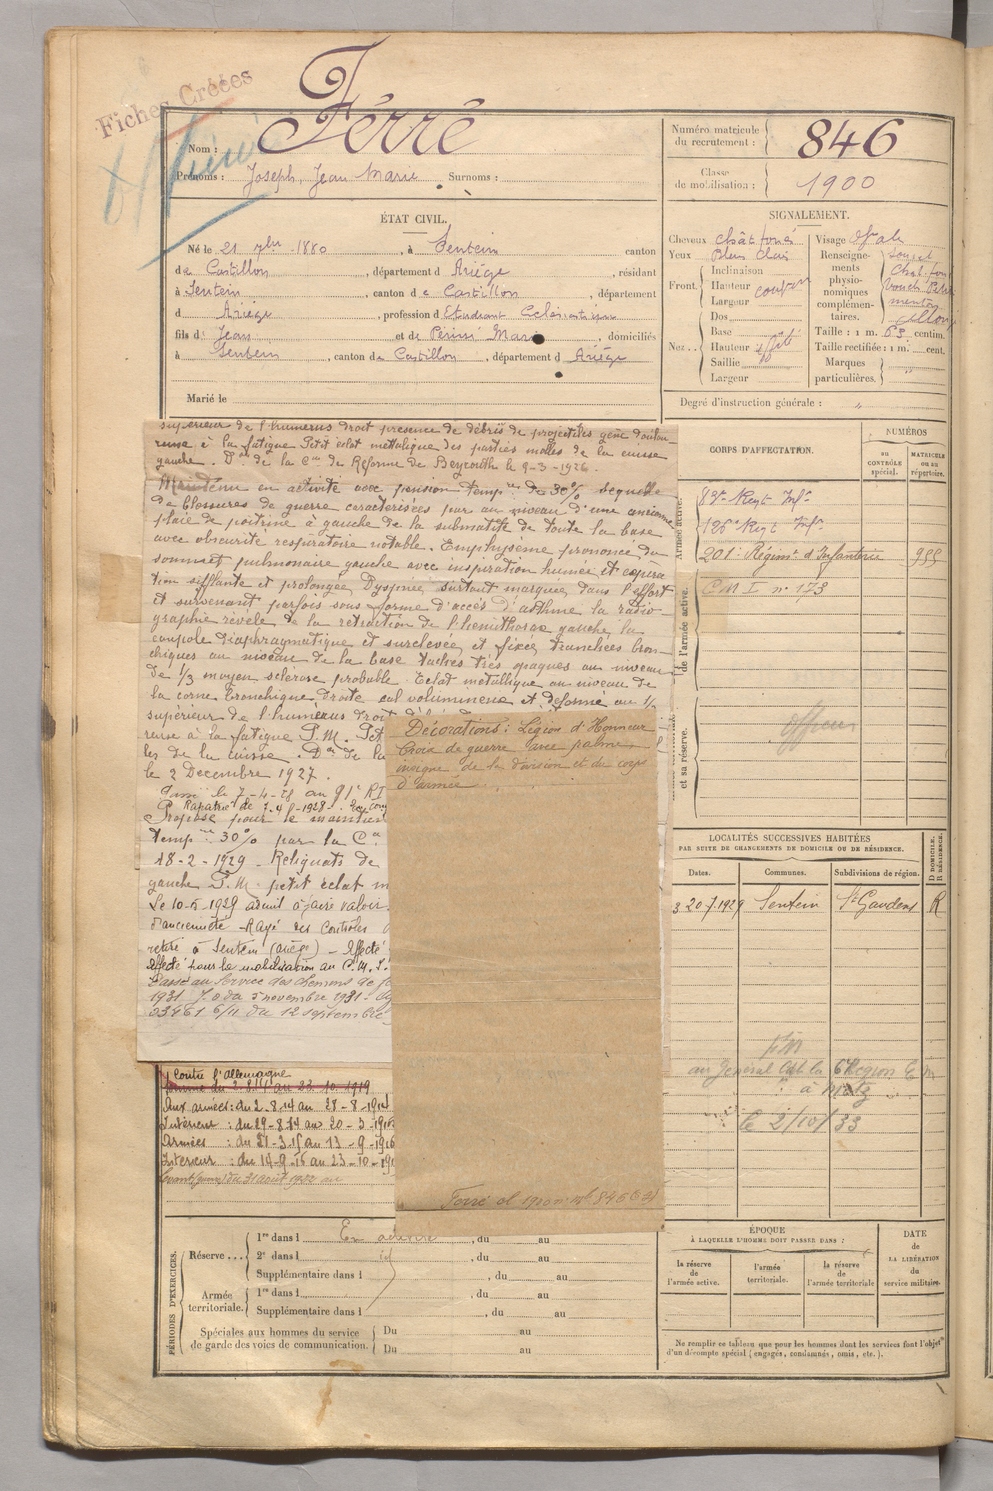 Fiches Créées
Ferré
Nom :
Prénoms : Joseph, Jean Marie . Surnoms :
Numéro matricule du recrutement : 846
Classe de mobilisation : 1900
ÉTAT CIVIL.
Né le 21 7bre 1880, à Sentein canton
de Castillon, département d Ariège, résidant
à Sentein, canton de Castillon, département
d Ariège, profession d Etudiant Eclésiastique
fils de Jean et de Périné Marie domiciliés
à Sentein, canton de Castillon, département d Ariège
Marié le
SIGNALEMENT.
Cheveux chât. foncé
Yeux Bleus clairs
Front. Inclinaison
Hauteur
Largeur
Nez... Dos
Base
Hauteur
Saillie
Largeur
Visage Ovale
Renseignements physionomiques complémentaires.
Taille : 1 m. 63 centim.
Taille rectifiée : 1 m. cent.
Marques particulières.
Degré d'instruction générale : "
supérieur de l'humerus droit presence de débris de projectiles gêne doulou-
reuse à la fatigue Petit éclat métallique des parties molles de la cuisse
gauche. Don de la Con de Réforme de Beyrouth le 9-3-1926.
Maintenu en activité avec pension tempre de 30% sequelle
de blessures de guerre caractérisées par au niveau d'une ancienne
plaie de poitrine à gauche de la submatité de toute la base
avec obscurité respiratoire notable. Emphysème prononcé du
sommet pulmonaire gauche avec inspiration humée et expira
tion sifflante et prolongée Dyspnée surtout marquée dans l'effort
et survenant parfois sous forme d'accès d'asthme la radio-
graphie révèle de la rétraction de l'hémithorax gauche, la
coupole diaphragmatique et surelevée et fixée, tranchées bron-
chiques au niveau de la base taches très opaques au niveau
de 1/3 moyen sclérose probable. Eclat métallique au niveau de
la corne bronchique droite cal volumineux et déformé au 1/3
supérieur de l'humérus droit
reuse à la fatigue P.M. Pet
les de la cuisse. Don de la
le 2 Decembre 1927.
Passé le 7-4-28 au 91e RI
Rapatrié de 7.4.1928.
Proposé pour le maintien
tempre 30% par la Con
18-2-1929. Reliquats de
gauche P.M. petit éclat m
Le 10-5-1929 admis à faire valoir
d'ancienneté - Rayé des contrôles
retiré à Sentein (Ariège) - Affecté
Affecté pour la mobilisation au C.M.I.
Passé au Service des Chemins de fe
1931 J.O du 5 novembre 1931.
23461 6/11 du 12 septembre
Décorations : Légion d'Honneur
Croix de guerre avec palme
insigne de la division et du corps
d'armée
Ferré cl 1900 n° ml 846
Contre l'allemagne
Comme du 2.8.14 au 23.10.1919
Aux armées : du 2-8-14 au 28-8-1914
Intérieur : du 29-8-14 au 20-3-191
Armées : du 21-3-15 au 13-9-1916
Intérieur : du 14-9-16 au 23-10-191
Levant (guerre) du 31 août 1922 au
CORPS D'AFFECTATION.
NUMÉROS
au CONTRÔLE spécial.
MATRICULE OU AU répertoire.
Armée active.
83e Regt Infie
126e Regt Infie
201e Régimt d'Infanterie 999
C M I n° 173
de l'armée active.
et sa réserve.
officier
LOCALITÉS SUCCESSIVES HABITÉES
PAR SUITE DE CHANGEMENTS DE DOMICILE OU DE RÉSIDENCE.
Dates. Communes. Subdivisions de région. D DOMICILE. R RÉSIDENCE.
20.7.1929 Sentein St Gaudens R
FM
au Général Cdt la 6e Région
" à Metz
le 2/10/33
PÉRIODES D'EXERCICES.
Réserve... 1re dans l En activité, du au
2e dans l, du au
Supplémentaire dans l, du au
Armée territoriale. 1re dans l, du au
Supplémentaire dans l, du au
Spéciales aux hommes du service de garde des voies de communication. Du au
Du au
ÉPOQUE
À LAQUELLE L'HOMME DOIT PASSER DANS :
la réserve de l'armée active.
l'armée territoriale.
la réserve de l'armée territoriale
DATE de LA LIBÉRATION du service militaire.
Ne remplir ce tableau que pour les hommes dont les services font l'objet
d'un décompte spécial (engagés, condamnés, omis, etc.).